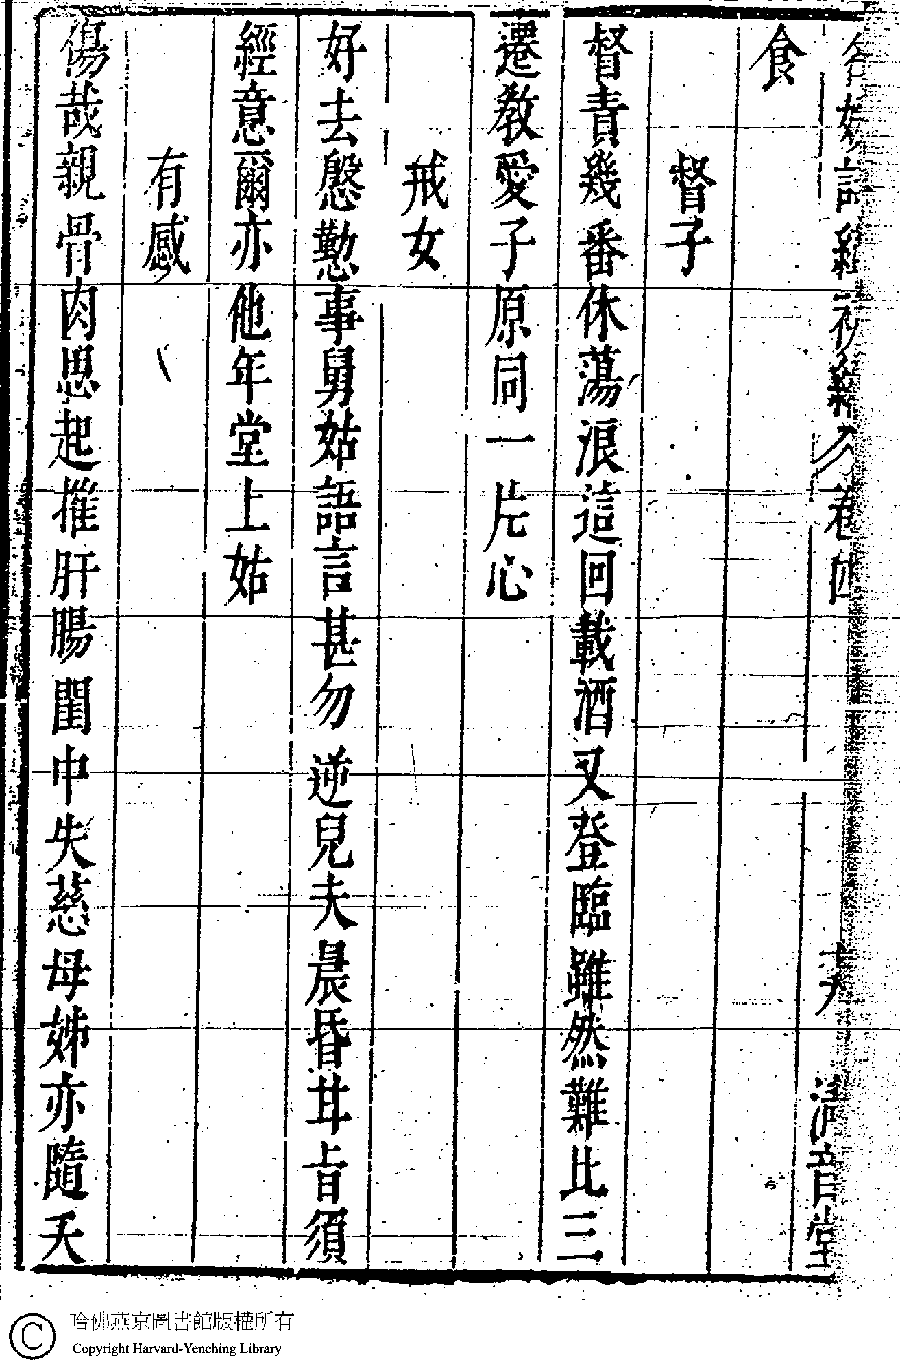 食
督子
督責幾番休蕩浪這回載酒又登臨雖然難比三
遷教愛子原同一片心
戒女
好去慇懃事舅姑語言甚勿逆兒夫晨昏甘旨須
經意爾亦他年堂上姑
有感
傷哉親骨肉思起摧肝腸閨中失慈母姊亦隨天
哈佛燕京圖書館版權所有
Copyright Harvard-Yenching Library